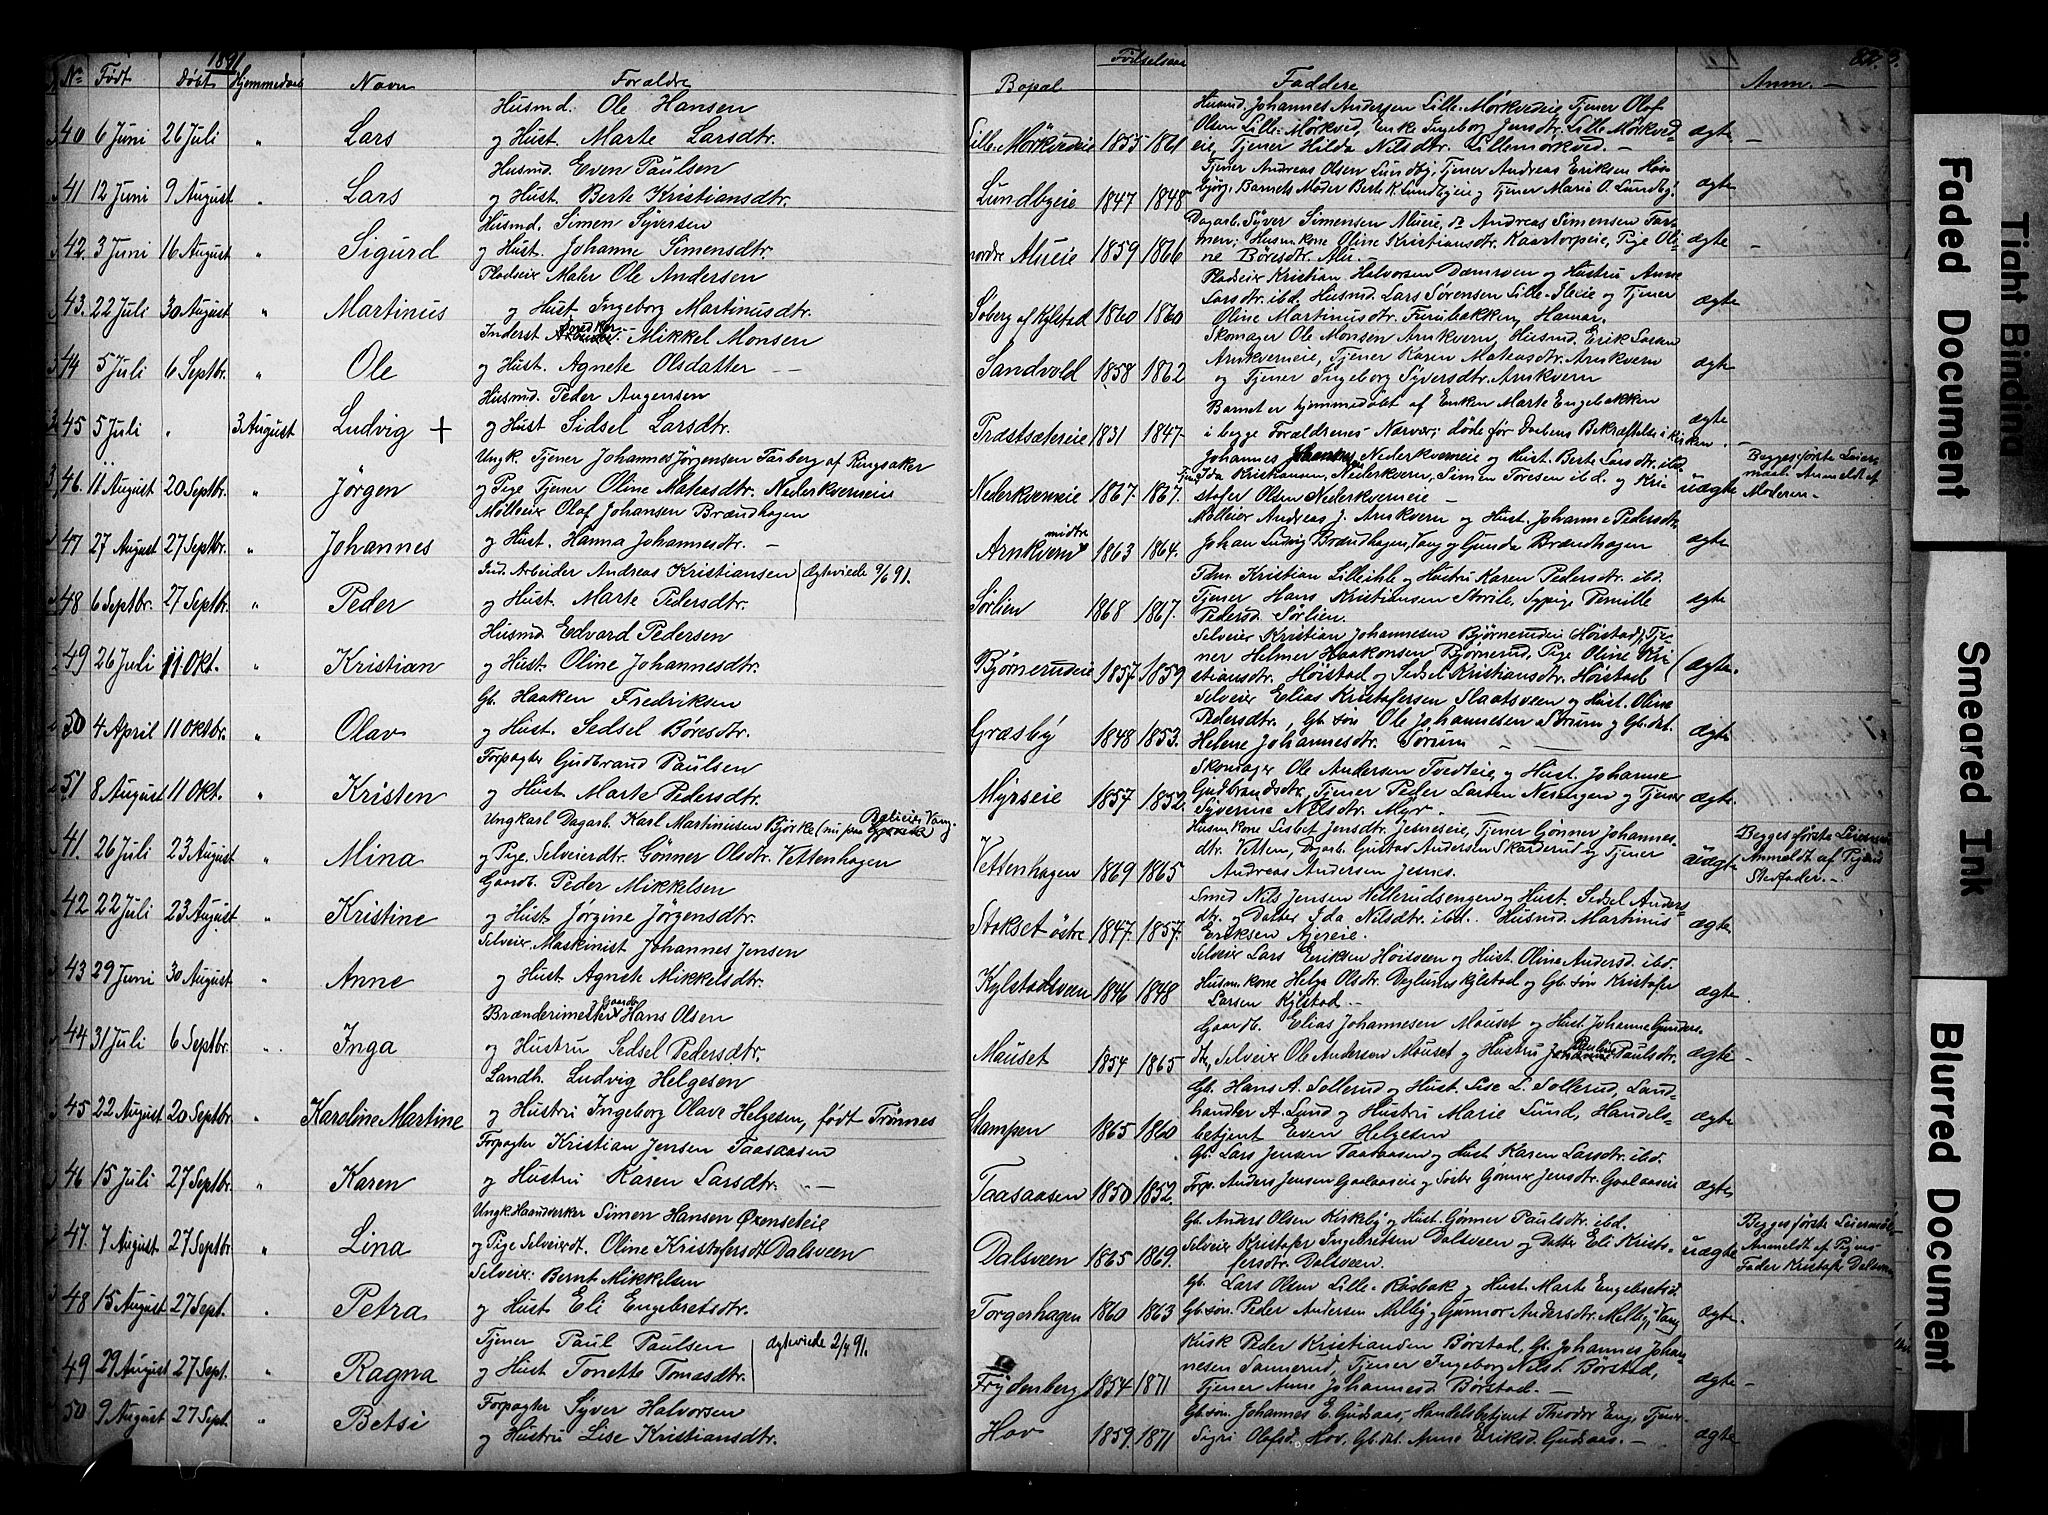 1891
Nr. Født Døbt Hjemmedøbt Navn Forældre Bopæl Fødselsaar Faddere Anm. —
Husmd. Ole Hansen
40 6 Juni 26 Juli " Lars og Hust. Marte Larsdtr. Lille-Mörkvedeie 1855 1861 ægte —
Husmd. Johannes Andersen Lille-Mörkvedeie Tjener Olaf
Olsen Lille-Mörkved, Enke Ingeborg Jensdtr. Lille Mörkved-
eie, Tjener Hilda Nilsdtr. Lillemörkved. —
Husmd. Even Paulsen
41 12 Juni 9 August " Lars og Hust. Berte Kristiansdtr. Lundbyeie 1847 1848 ægte
Tjener Andreas Olsen Lundby, Tjener Andreas Eriksen
Barnets Moder Berte K. Lundbyeie og Tjener Maria O. Lundby.
Husmd. Simen Syversen
42. 3 Juni 16 August " Sigurd og Hust. Johanne Simensdtr. nordre Alueie 1859 1866 ægte —
Dagarb. Syver Simensen Alueie, Andreas Simensen
Husm.kone Oline Kristiansdtr. Kaartorpeie, Pige Oli-
ne Böresdtr. Alu. —
Pladseier Maler Ole Andersen
43. 22 Juli 30 August " Martinus og Hust. Ingeborg Martinusdtr. Soberg af Kylstad 1860 1860 ægte
Pladseier Kristian Halvorsen og Hustru Anne
Larsdtr. ibd. Husmd. Lars Sørensen Lille-Ileie og Tjener
Oline Martinusdtr. Furubakken, Hamar.
Inderst Snedker Mikkel Monsen
44 5 Juli 6 Septbr. " Ole og Hust. Agnete Olsdatter — Sandvold 1858 1862 ægte
Skomager Ole Monsen Arnkvern, Husmd. Erik Larsen
Arnkverneie, Tjener Karen Mateasdtr. Arnkvern
og Tjener Ingeborg Syversdtr. Arnkvern
Husmd. Peder Augensen
45 5 Juli " 3. August Ludvig + og Hust Sidsel Larsdtr. Præstsætereie 1831 1847 ægte
Barnet er hjemmedøbt af Enken Marte Engebakken
i begge Forældrenes Nærvær; døde før Daabens Bekræftelse i kirken.
Ungk. Tjener Johannes Jörgensen Farberg af Ringsaker
46. 11 August 20 Septbr. " Jörgen og Pige Tjener Oline Mateasdtr. Nederkverneie Nederkverneie 1867. 1867. uægte
Johannes Nederkverneie og Hust. Berte Larsdtr. ibd.
Ida Kristiansen, Nederkvern, Simen Toresen ibd. og Kri-
stofer Olsen Nederkverneie —
Begges første Leier-
maal. Anmeldt af
Moderen —
Mölleier Olaf Johansen Brændhagen
47 27 August 27 Septbr. " Johannes og Hust. Hanna Johannesdtr. — Arnkvern midtre 1863 1864. ægte
Mölleier Andreas J. Arnkvern og Hust. Johanne Pedersdtr.
Johan Ludvig Brændhagen, Vang og Gunda Brændhagen
Ind. Arbeider Andreas Kristiansen | Ægteviede 9/6 91.
48 6 Septbr. 27 Septbr. " Peder og Hust. Marte Pedersdtr. Sørlien 1868 1867. ægte
Kristian Lilleihle og Hustru Karen Pedersdtr. ibd.
Tjener Hans Kristiansen Storile, Sypige Pernille
Pedersd. Sørlien.
Husmd. Edvard Pedersen
49 26 Juli 11 Okt. " Kristian og Hust. Oline Johannesdtr. Bjørnerudeie 1857 1859 ægte.
Selveier Kristian Johannesen Bjørnerudeie Höistad, Tje-
ner Helmer Haakonsen Bjørnerud, Pige Oline Kri-
stiansdtr. Höistad og Sedsel Kristiansdtr. Höistad
Gb. Haaken Fredriksen
50 4 April 11 Oktbr. " Olav og Hust. Sedsel Böresdtr. Græsby 1848 1853. ægte
Selveier Elias Kristofersen Slaatsveen og Hust. Oline
Pedersdtr., Gb. søn Ole Johannesen Sörum og Gb. dat.
Helene Johannesdtr. Sørum —
Forpagter Gudbrand Paulsen
51 8 August 11 Okt. " Kristen og Hust Marte Pedersdtr. Myrseie 1857 1852. ægte.
Skomager Ole Andersen Tvedteie, og Hust. Johanne
Gudbrandsdtr., Tjener Peder Larsen Nerengen og Tjener
Syverine Nilsdtr. Myr. —
Ungkarl Dagarb. Karl Martinusen Björke
41. 26 Juli 23 August " Mina og Pige Selveierdtr. Gönner Olsdtr. Vettenhagen Vettenhagen 1869 1865 uægte
Husm. kone Lisbet Jensdtr. Jesneseie, Tjener Gönner Johannes-
dtr. Vetten, Dagarb. Gustad Andersen Skarderud og Tjener
Andreas Andersen Jesnes.
Begges første Leiermaal
Anmeldt af Pigens
Stedfader. —
Gaardb. Peder Mikkelsen
42 22 Juli 23 August " Kristine og Hust. Jörgine Jörgensdtr. Stokset östre 1847. 1857. ægte
Smed Nils Jensen Hellerudsengen og Hust. Sedsel Anders-
dtr. og Datter Ida Nilsdtr. ibd. Husmd. Martinus
Eriksen Ajereie.
Selveier Maskinist Johannes Jensen
43 29 Juni 30 August " Anne og Hust Agnete Mikkelsdtr. Kylstadsveen 1846 1848 ægte
Selveier Lars Eriksen Höisveen og Hust. Oline Andersd. ibd.
Husm. kone Helga Olsdtr. og Gb. søn Kristofer
Larsen Kylstad. —
Brænderimester Gaardb. Hans Olsen
44 31 Juli 6 Septbr. " Inga og Hustru Sedsel Pedersdtr. Mauset 1854 1865 ægte —
Gaardb. Elias Johannesen Mauset og Hust. Johanne Gunders-
dtr, Selveier Ole Andersen Mauset og Hustru Pauline Paulsdtr.
Landh. Ludvig Helgesen
45 22 August 20 Septbr. " Karoline Martine og Hustru Ingeborg Olave Helgesen, født Trønnes Stampen 1865 1860 ægte
Gb. Hans A. Sollerud og Hust Lise L. Sollerud, Land-
handler A. Lund og Hustru Marie Lund, Handels-
betjent Even Helgesen
Forpagter Kristian Jensen Taasaasen
46 15 Juli 27 Septbr. " Karen og Hustru Karen Larsdtr. — Taasaasen 1850 1852 ægte
Gb. Lars Jensen Taasaasen og Hust Karen Larsdtr. ibd.
Forp. Anders Jensen Gaalaaseie og Søster Gönner Jensdtr. Gaalaaseie
Ungk. Haandverker Simen Hansen Øxenseteie
47. 7 August 27 Septbr. " Lina og Pige Selveierdt. Oline Kristofersdt. Dalsveen Dalsveen 1865 1869. uægte
Gb. Anders Olsen Kirkeby og Hust. Gönner Paulsdtr. ibd.
Selveier Kristofer Ingebretsen Dalsveen og Datter Eli Kristo-
fersdtr. Dalsveen.
Begges første Leiermaal
Anmeldt af Pigens
Fader Kristofer Dalsveen
Selveier Bernt Mikkelsen
48 15 August 27 Sept. " Petra og Hust Eli Engebretsdtr. Torgerhagen 1860 1863 ægte.
Gb. Lars Olsen Lille-Røsbak og Hust. Marte Engebretsd.
Gb. søn Peder Andersen Melby og Gunnor Andersdtr. Melby, Vang
Tjener Paul Paulsen | Ægteviede 2/4 91.
49 29 August 27 Sept. " Ragna og Hust Tonette Tomasdtr. Frydenberg 1854 1871 ægte —
Kusk Peder Kristiansen Børstad, Gb. Johannes Johan-
nesen Sannerud, Tjener Ingeborg Nilsd. Børstad,
Tjener Anne Johannesd. Børstad. —
Forpagter Syver Halvorsen
50 9 August 27 Sept. " Betsi og Hustru Lise Kristiansdtr. Hov 1859. 1871 ægte
Gb. søn Johannes E. Gudsaas, Handelsbetjent Theodor Eng, Tjener
Sigri Olefsd. Hov, Gb. dat. Anne Eriksd. Gudsaas. —
Tight Binding
Faded Document
Smeared Ink
Blurred Document